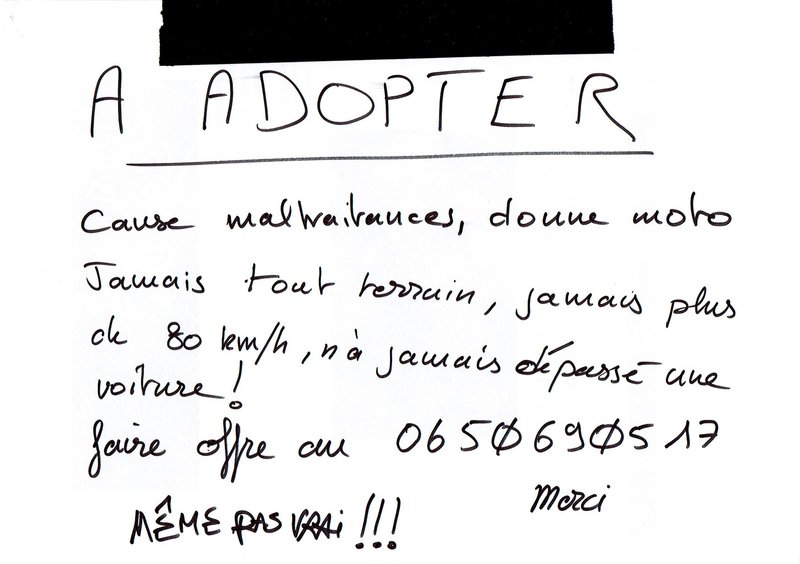 A ADOPTER
Cause maltraitances, donne moto
Jamais tout terrain, jamais plus
de 80 km/h, n'à jamais dépassé une
voiture!
faire offre au 0650690517
Merci
MÊME PAS VRAI !!!